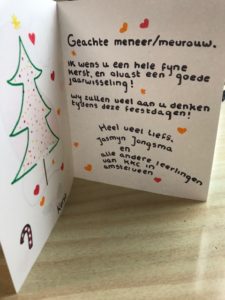 Geachte meneer/meurouw.
Ik wens u een hele fyne
kerst, en alvast een goede
jaarwisseling!
wy zullen veel aan u denken
tydens deze feestdagen!
Heel veel liefs,
Jasmyn Jongsma
en
alle andere leerlingen
van KKC in
amstelveen